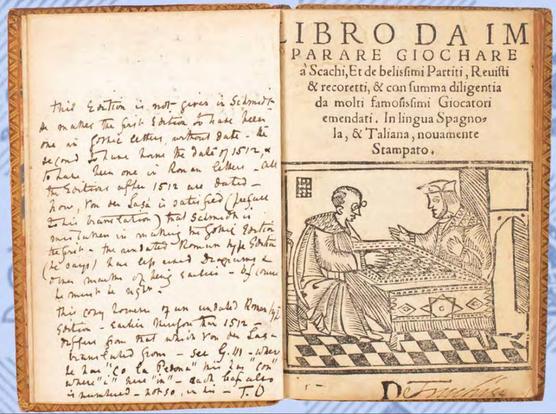 This Edition is not given in Schmidt
he makes the first Edition to have been
one in Gothic letters, without date - the
second to have borne the date of 1512, &
to have been one in Roman letters - all
the Editions after 1512 are dated -
now, Von der Lasa is satisfied (preface
to his translation) that Schmidt is
in making the Gothic Edition
the first - the undated Roman type Edition
(he says) has left Diagrams &
other marks of being earlier -
he must be right -
This copy however of an undated Roman type
Edition - earlier therefore than 1512 -
differs from that which Von der Lasa
translated from - see G. III - where
he has "Co la Pedona" this has "con"
where "i" here "in" - each leaf also
is numbered - not so, in his - T. D
LIBRO DA IM
PARARE GIOCHARE
à Scachi, Et de belissimi Partiti, Reuisti
& recoretti, & con summa diligentia
da molti famosissimi Giocatori
emendati. In lingua Spagno-
la, & Taliana, nouamente
Stampato.